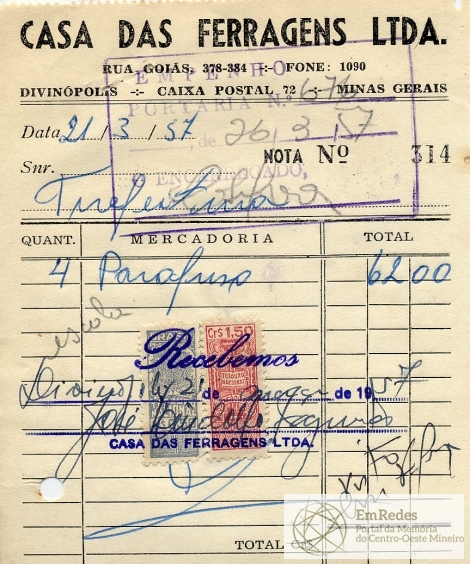 CASA DAS FERRAGENS LTDA.
RUA GOIÁS, 378-384 -:- FONE: 1090
DIVINÓPOLIS -:- CAIXA POSTAL 72 -:- MINAS GERAIS
EMPENHO
PORTARIA N.º 676
, de 26, 3, 57
O ENCARREGADO,
Data 21 / 3 / 57
NOTA Nº 314
Snr.
QUANT. MERCADORIA TOTAL
4 Parafuso 62 00
escola
Cr$ 1,50
TESOURO
NACIONAL
Recebemos
21 de março de 1957
José
CASA DAS FERRAGENS LTDA.
TOTAL Cr$
EmRedes
Portal da Memória
do Centro-Oeste Mineiro